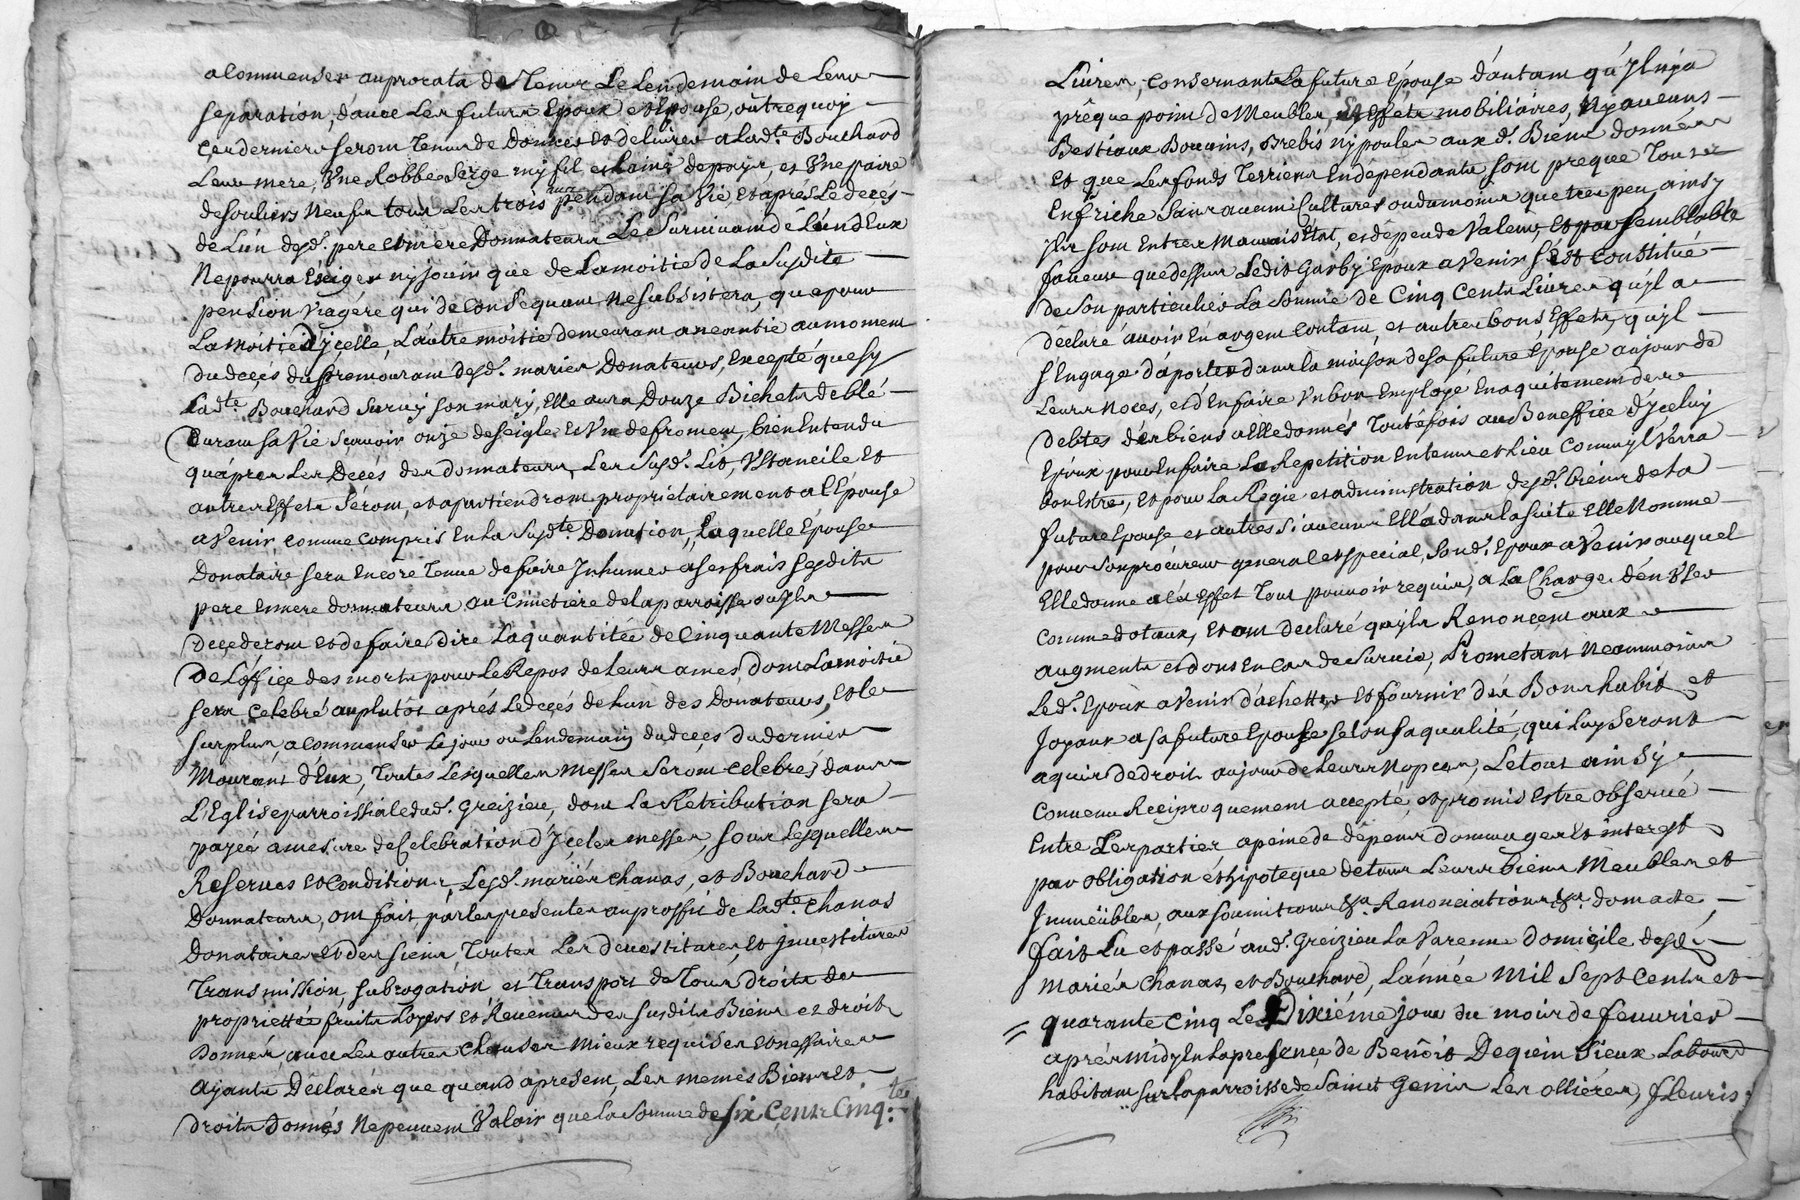 a Commenser au prorata de Tems Le Lendemain de Leur
separation, d'avec Les futurs Epoux et Epouse, outre quoy
Ces derniers seront Tenus de Donner et de Livrer a Lad.te Bouchard
Leur mere, Vne Robbe serge my fil et Laine de pays, et Vne paire
de souliers Neufs tous Les trois ans pendant sa Vie et aprés Le deces
de L'un desd. pere et mere Donnateurs Le Survivant de L'un d'Eux
Ne pourra Exiger ny jouir que de La moitie de La Susdite
pension Viagére qui de Consequant Ne subsistera, que pour
La moitie d'ycelle, L'autre moitie demeurant aneantie au moment
du deçés du p.r mourant desd. mariés Donateurs, Excepté que sy
Lad.te Bouchard survit son mary, Elle aura Douze Bichets de blé
Durant sa Vie Scavoir onze de seigle et Vn de froment, bien Entendu
qu'apres Les Decés des donnateurs, Les Susd. Lit, Vstancile et
autres Effets Seront, et apartiendront propriétairement a l'Epouse
a Venir, comme Compris En La Susd.te Donation, Laquelle Epouse
Donataire sera Encore Tenue de faire Inhumer a ses frais sesdits
pere et mere donnateurs au Cimetiére de La parroisse ou Ils
Decederont et de faire Dire La quantitée de Cinquante Messes
De L'office des morts pour Le Repos de Leurs ames, dont La moitié
sera Celebré au plutôt aprés Le deçés de Lun des Donateurs, et Le
surplus, a Commenser Le jour ou Lendemain du deçes du dernier
Mourant d'Eux, Toutes Lesquelles Messes Seront Celebrés dans
L'Eglise parroissiale dud. Greizieu, dont La Retribution sera
payée a mesure de Celebration d'Ycelles messes, sous Lesquelles
Reserves et Conditions, Lesd. mariés Chanas, et Bouchard
Donnateurs, ont fait, par Les presentes au proffit de Lad.te Chanas
Donataire et des siens, Toutes Les devestitures et investitures
Transmission, subrogation et Transport de Tous droits de
propriettée fruits Loyers et Revenus des susdits Biens et droits
Donnés, avec Les autres Clauses mieux requises et Nessaires
ayants Déclarés que quand apresent, Les memes Biens et
droits Donnés Ne peuvent Valoir que La Somme de six Cents Cinq.te
Livres, Consernants La future Epouse d'autant qu'yl n'y a
prêque point de Meubles, et Effets mobiliaires, Ny aucuns
Bestiaux Bouvins, Brebis ny poules aux d. Biens donnés
et que Les fonds Terriens En dependants sont preque Tous
En friche Sans aucune Cultures ou du moins que tres peu, ainsy
sont En tres Mauvais Etat, et de peu de Valeur, Et par semblable
faveur que dessus Ledit Garby Epoux a Venir s'est Constitué
de Son particulier La Somme de Cinq Cents Livres qu'yl a
déclaré avoir En argent Contant, et autres bons Effets, qu'yl
s'Engage d'aporter dans La maison de sa future Epouse au jour de
Leurs Noces, et d'En faire Vn bon Employé En aquitement de
debtes des biens a Elle donnés Toutefois au Beneffice d'yceluy
Epoux pour En faire La Repetition En tems et Lieu Comm'yl Verra
bon Estre, et pour La Regie et administration desd. biens de La
future Epouse et autres si aucuns Elle a dans La suite Elle Nomme
pour son procureur general et special, Sond. Epoux a Venir auquel
Elle donne a Cet Effet Tout pouvoir requis, a La Charge d'en Vser
Comme dotaux, Et ont declaré qu'yls Renoncent aux
augments et dons En Cas de Survie, Prometant Neanmoins
Led. Epoux a Venir d'achetter et fournir des Bons habits et
Joyaux a sa future Epouse selon sa qualité, qui Luy Seront
aquis de droit au jour de Leurs Nopces, Le tout ainsy
Convenu Reciproquement accepté et promis Estre observé
Entre Les parties a peine de dépens dommages et interest
par obligation et hipoteque de tous Leurs biens Meubles et
Immeübles, aux soumitions &a. Renonciations &a. dont acte,
fait Lu et passé aud. Greizieu La Varenne domicile desd.
Mariés Chanas, et Bouchard, L'année Mil Sept Cents et
quarante Cinq Le Dixiéme jour du mois de fevrier
aprés midy En La presence de Benôit Dequin Sieux Laboureur
habitant sur La parroisse de Saint Genis Les olliéres, fleuris